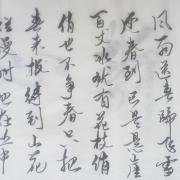 风雨送春歸飞雪
迎春到已是悬崖
百丈冰犹有花枝俏
俏也不争春只把
春来报待到山花
烂漫时她在丛中